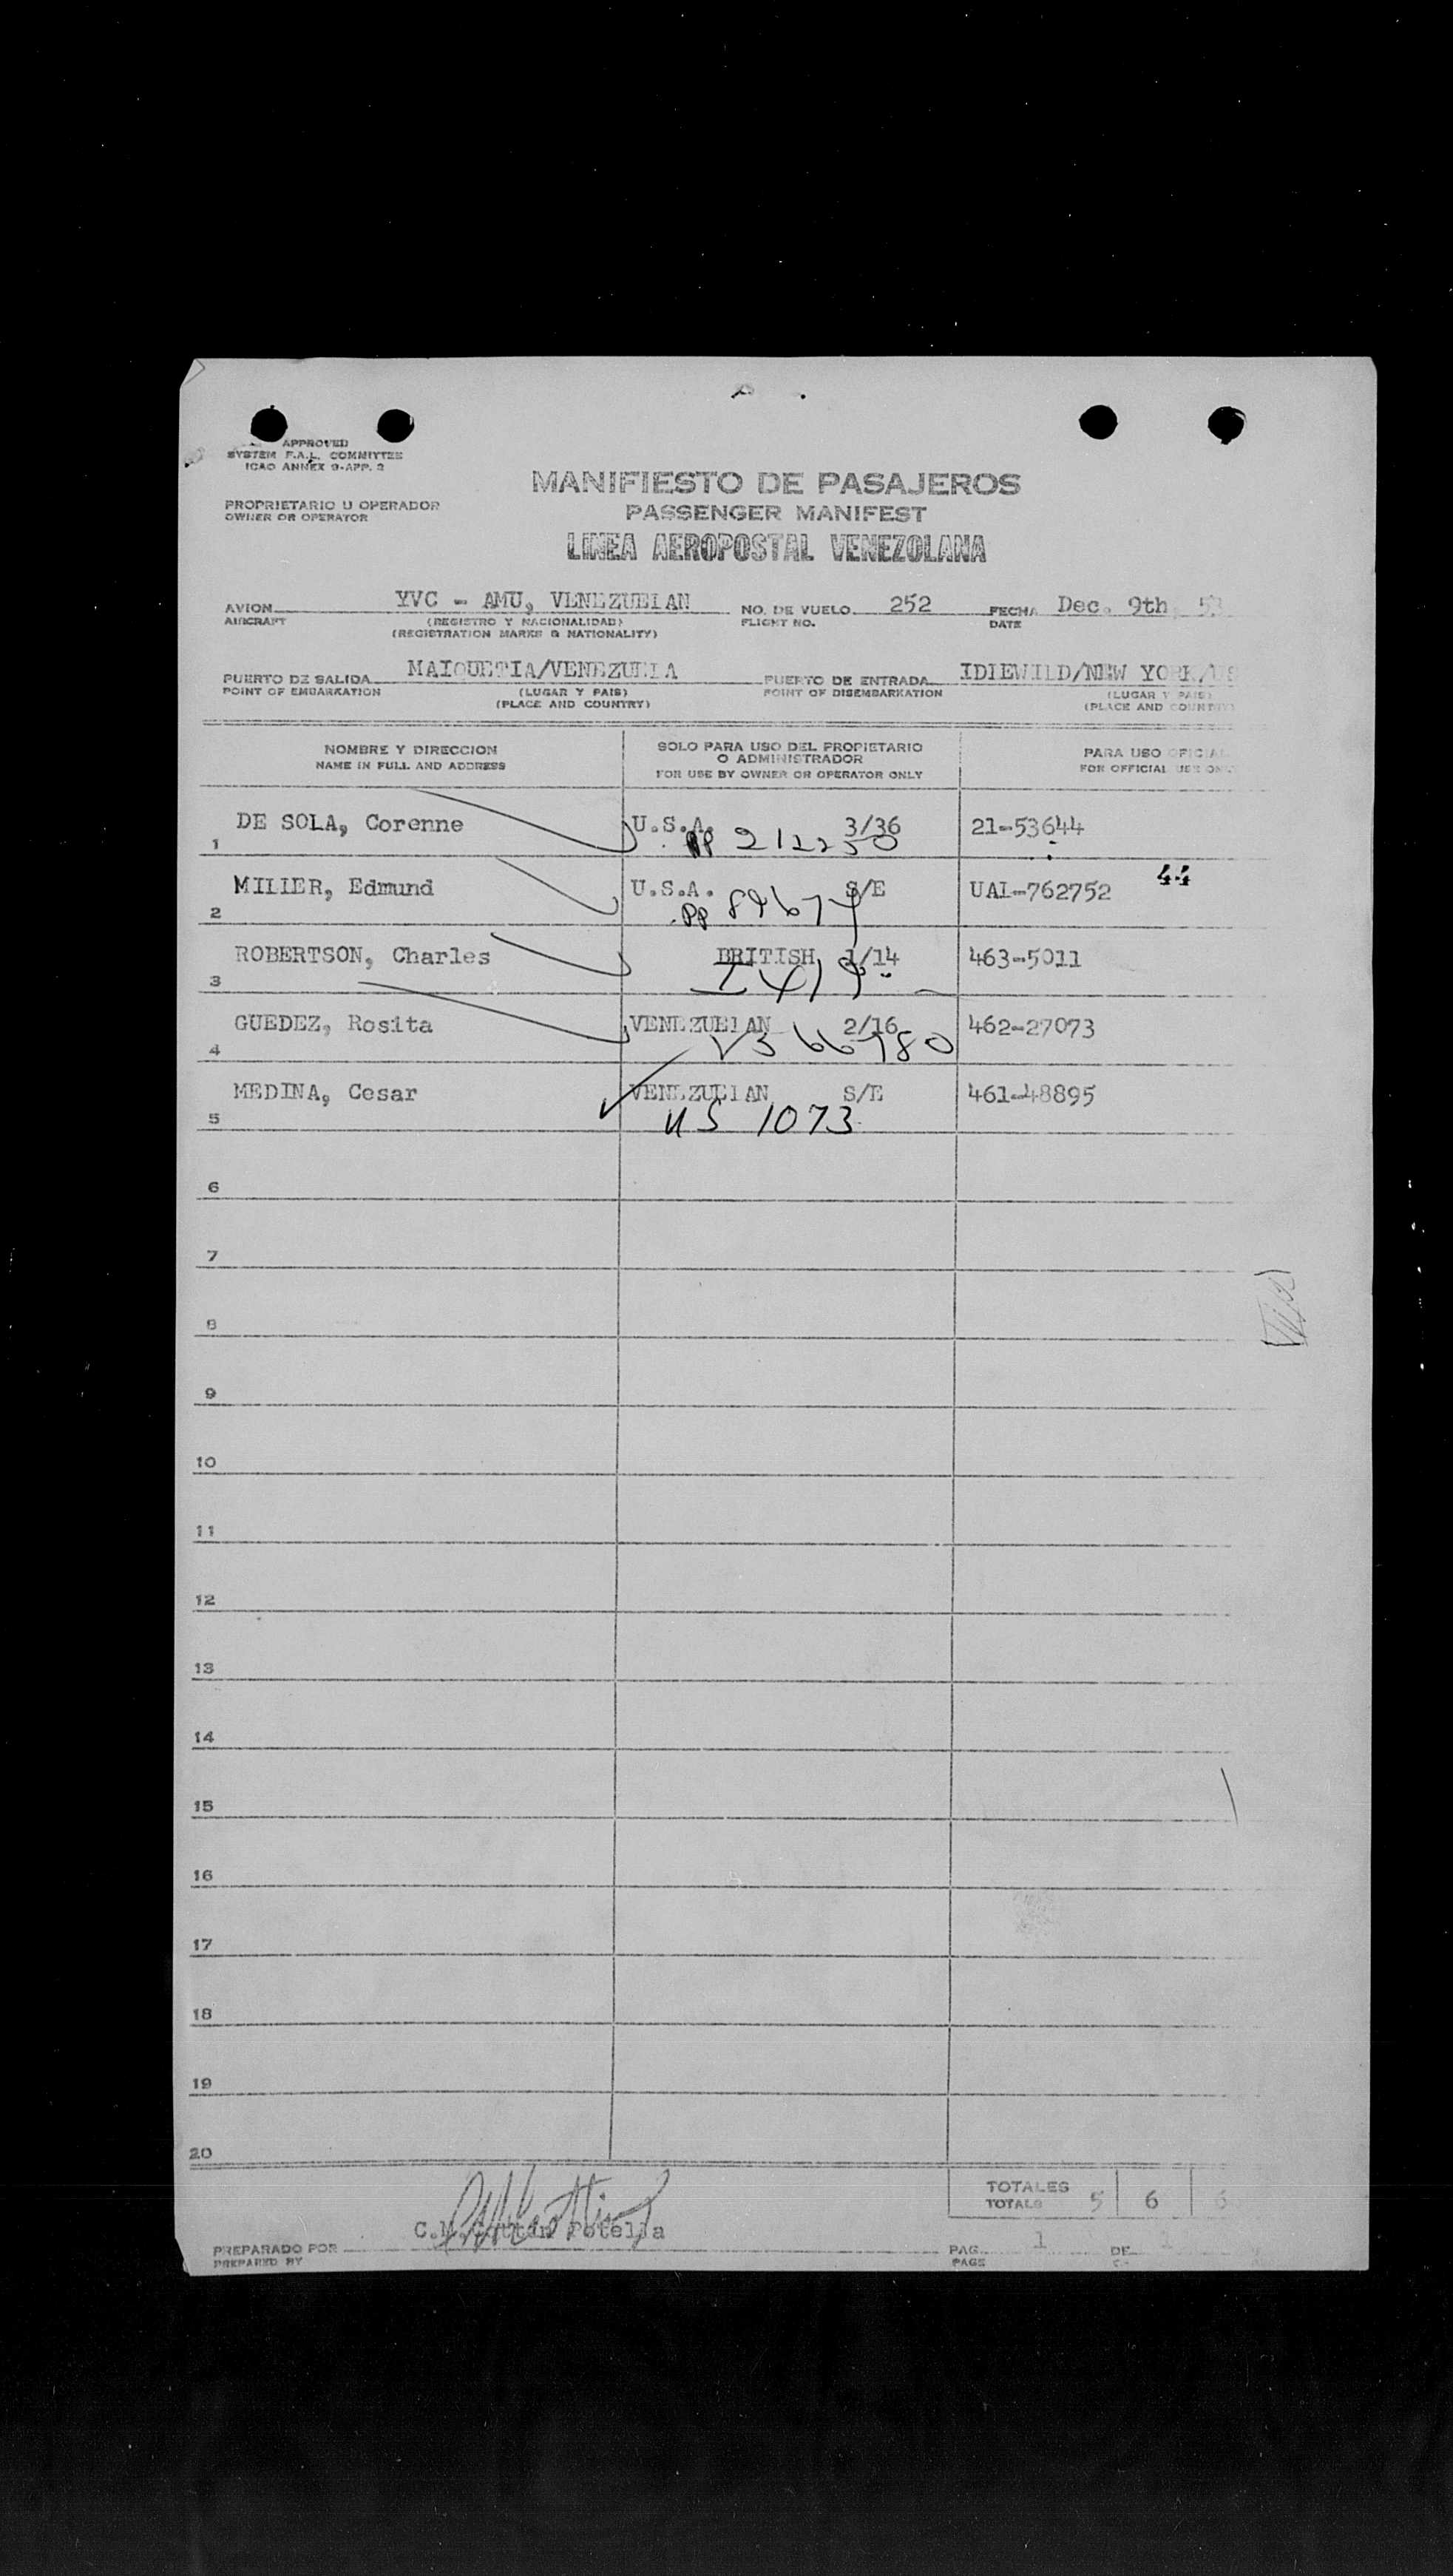 APPROVED
SYSTEM F.A.L. COMMITTEE
ICAO ANNEX 9-APP. 2
MANIFIESTO DE PASAJEROS
PROPRIETARIO U OPERADOR
OWNER OR OPERATOR
PASSENGER MANIFEST
LINEA AEROPOSTAL VENEZOLANA
AVION YVC - AMU, VENEZUELAN NO. DE VUELO 252 FECHA Dec. 9th, 53
AIRCRAFT (REGISTRO Y NACIONALIDAD) FLIGHT NO. DATE
(REGISTRATION MARKS & NATIONALITY)
PUERTO DE SALIDA MAIQUETIA/VENEZUELA PUERTO DE ENTRADA IDLEWILD/NEW YORK/US
POINT OF EMBARKATION (LUGAR Y PAIS) POINT OF DISEMBARKATION (LUGAR Y PAIS)
(PLACE AND COUNTRY) (PLACE AND COUNTRY)
NOMBRE Y DIRECCION
NAME IN FULL AND ADDRESS
SOLO PARA USO DEL PROPIETARIO
O ADMINISTRADOR
FOR USE BY OWNER OR OPERATOR ONLY
PARA USO OFICIAL
FOR OFFICIAL USE ONLY
DE SOLA, Corenne U.S.A. 3/36 21-53644
1 PP 212250
MILLER, Edmund U.S.A. S/E UAL-762752 44
2 PP 89674
ROBERTSON, Charles BRITISH 1/14 463-5011
3
GUEDEZ, Rosita VENEZUELAN 2/16 462-27073
4 V366780
MEDINA, Cesar VENEZUELAN S/E 461-48895
5 US 1073
6
7
8
9
10
11
12
13
14
15
16
17
18
19
20
TOTALES
TOTALS 5 6 6
PREPARADO POR
PREPARED BY
PAG. 1 DE 1
PAGE